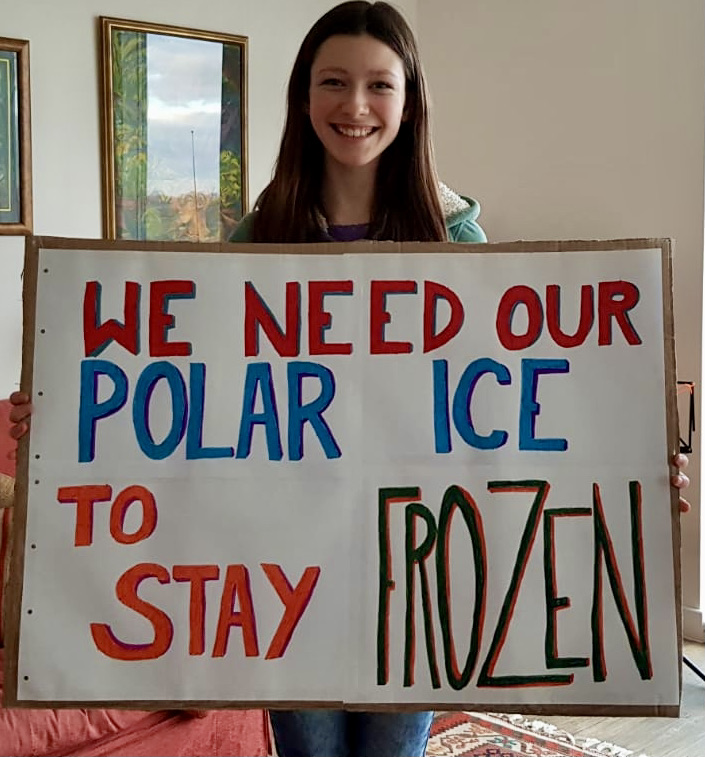 WE NEED OUR
POLAR ICE
TO
STAY FROZEN